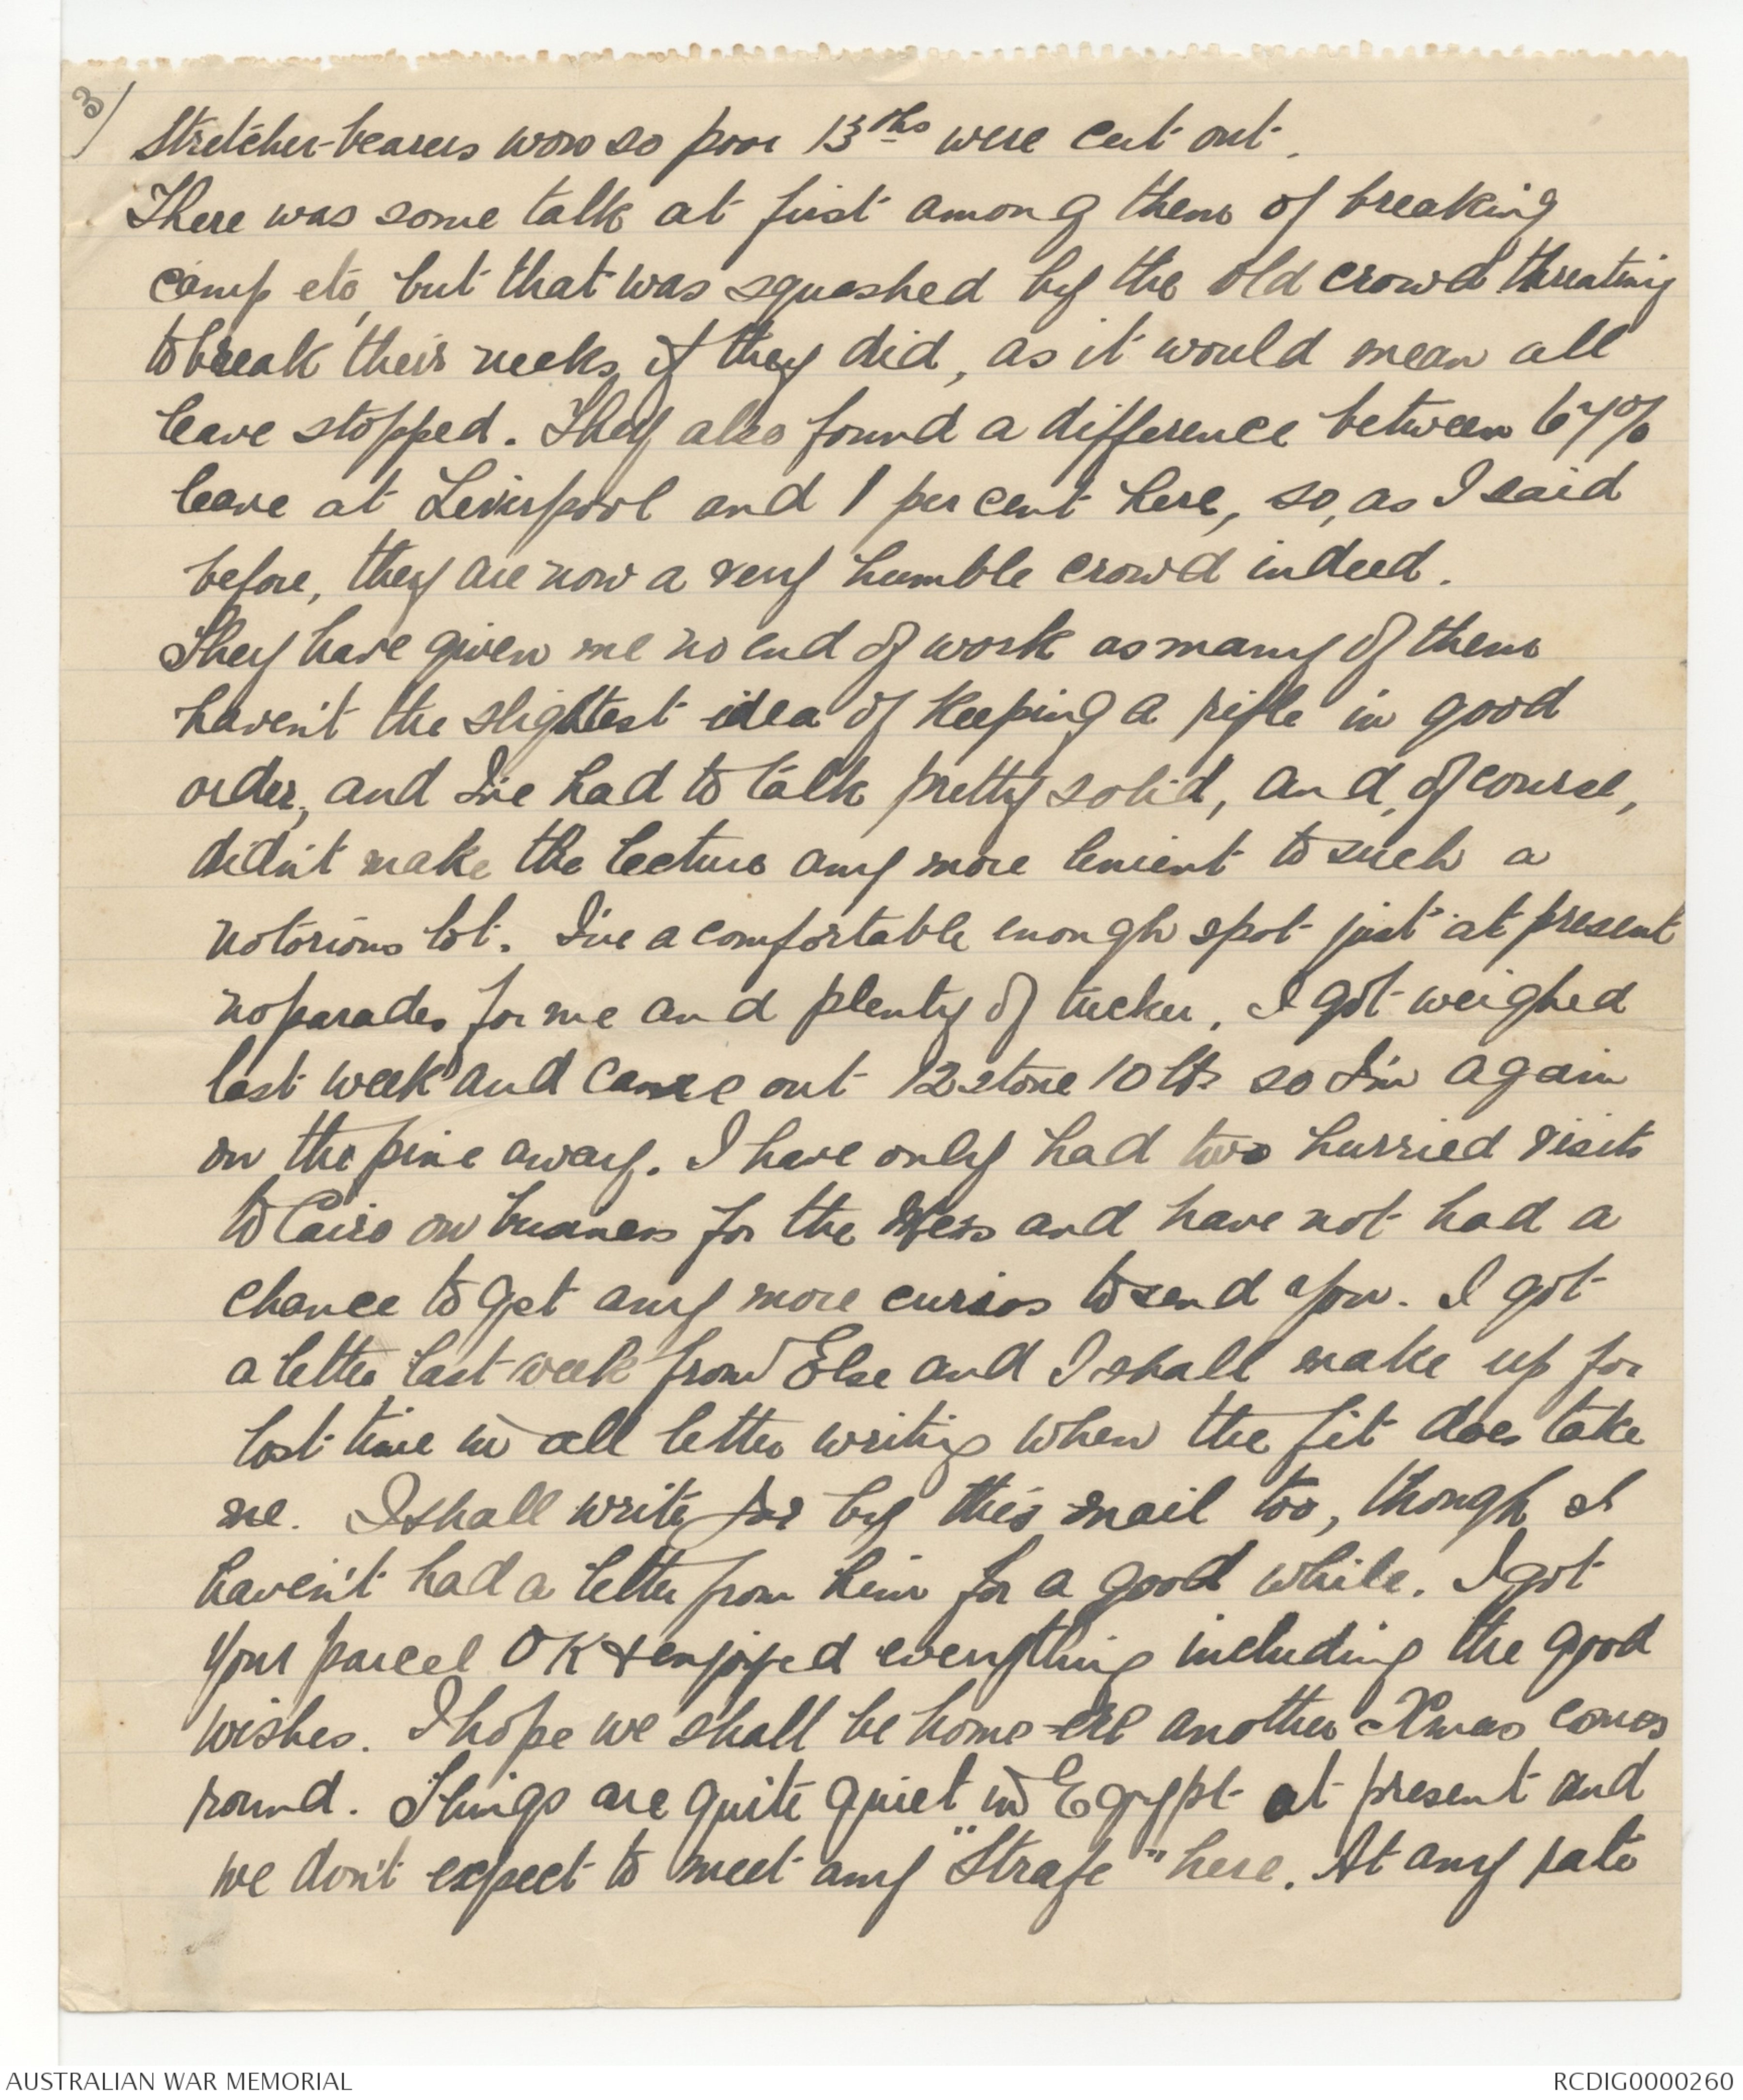 3/
Stretcher-bearers won so poor 13ths were cut out.
There was some talk at first among them of breaking
camp etc, but that was squashed by the old crowd threating
to break their necks, if they did, as it would mean all
leave stopped. They also found a difference between 67%
leave at Liverpool and 1 per cent here, so, as I said
before, they are now a very humble crowd indeed.
They have given me no end of work as many of them
haven't the slightest idea of keeping a rifle in good
order, and I've had to talk pretty solid, and, of course,
didn't make the lecture any more lenient to such a
notorious lot. I've a comfortable enough spot just at present
no parades for me and plenty of tucker. I got weighed
last week and came out 12 stone 10 lbs so I'm again
on the pine away. I have only had two hurried visits
to Cairo on business for the Mess and have not had a
chance to get any more curios to send you. I got
a letter last week from Else and I shall make up for
lost time in all letter writing when the fit does take
me. I shall write by this mail too, though I
haven't had a letter from him for a good while. I got
your parcel OK & enjoyed everything including the good
wishes. I hope we shall be home ere another Xmas comes
round. Things are quite quiet in Egypt at present and
we don't expect to meet any "Strafe" here. At any rate
AUSTRALIAN WAR MEMORIAL
RCDIG0000260